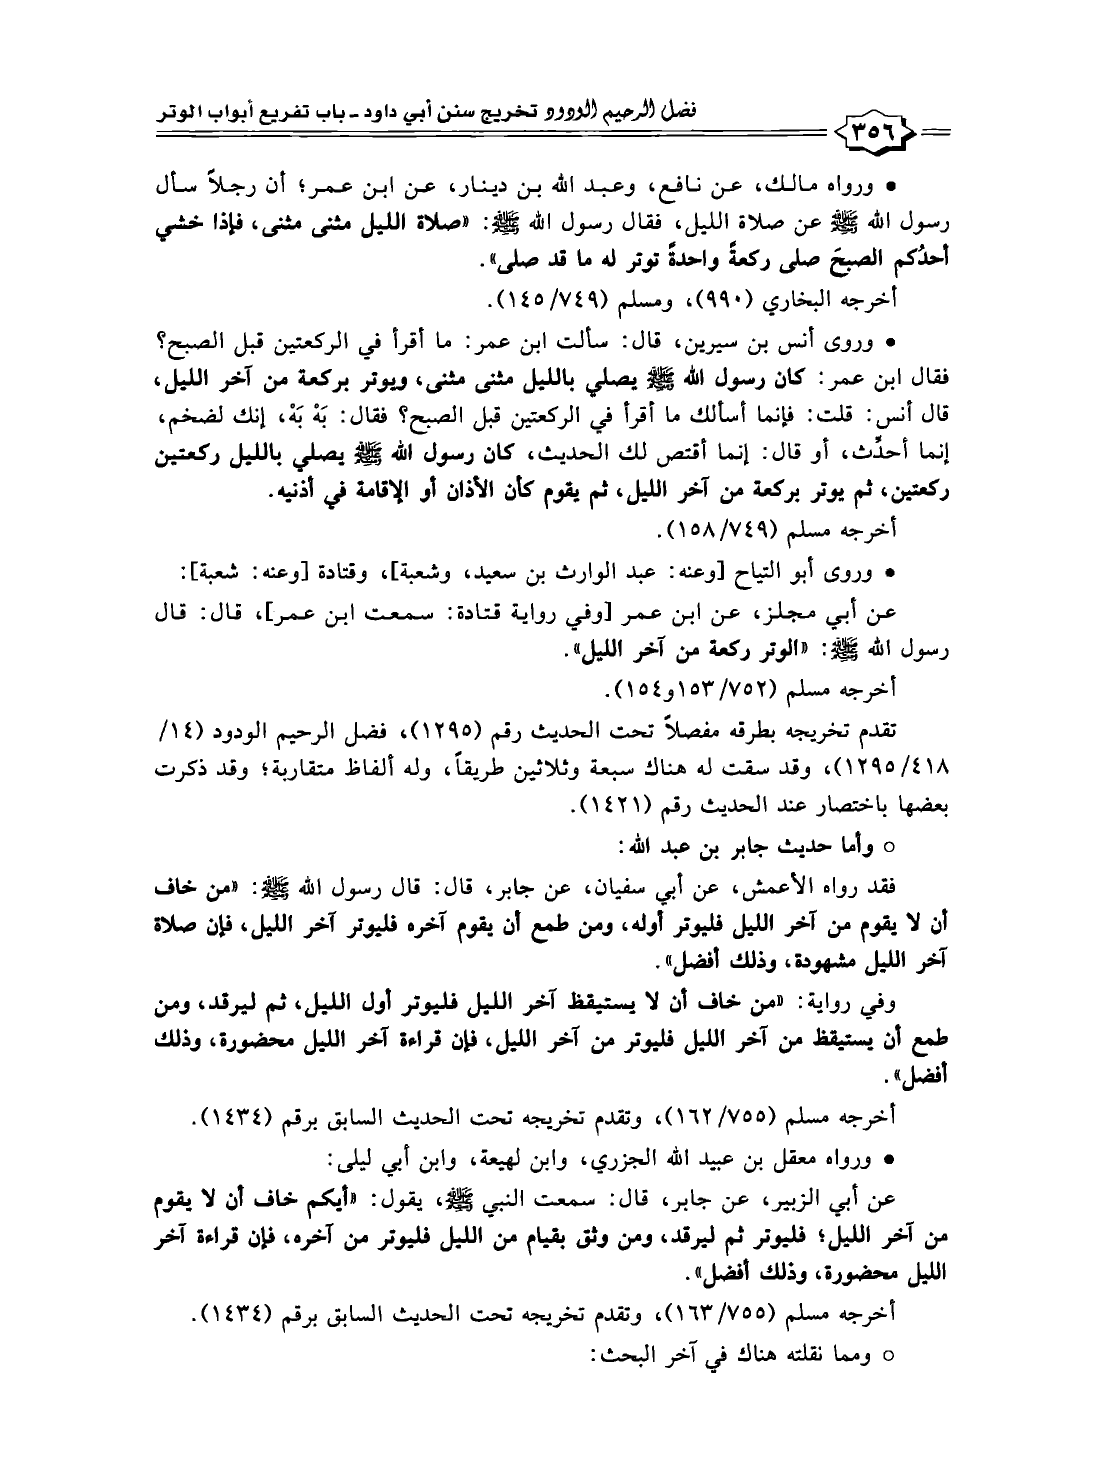 فضل الرحيم الودود تخريج سنن أبي داود ـ باب تفريع أبواب الوتر
٣٥٦
• ورواه مالك، عن نافع، وعبد الله بن دينار، عن ابن عمر؛ أن رجلاً سأل
رسول الله ﷺ عن صلاة الليل، فقال رسول الله ﷺ: «صلاة الليل مثنى مثنى، فإذا خشي
أحدُكم الصبحَ صلى ركعةً واحدةً توتر له ما قد صلى».
أخرجه البخاري (٩٩٠)، ومسلم (١٤٥/٧٤٩).
• وروى أنس بن سيرين، قال: سألت ابن عمر: ما أقرأ في الركعتين قبل الصبح؟
فقال ابن عمر: كان رسول الله ﷺ يصلي بالليل مثنى مثنى، ويوتر بركعة من آخر الليل،
قال أنس: قلت: فإنما أسألك ما أقرأ في الركعتين قبل الصبح؟ فقال: بَهْ بَهْ، إنك لضخم،
إنما أحدِّث، أو قال: إنما أقتص لك الحديث، كان رسول الله ﷺ يصلي بالليل ركعتين
ركعتين، ثم يوتر بركعة من آخر الليل، ثم يقوم كأن الأذان أو الإقامة في أذنيه.
أخرجه مسلم (١٥٨/٧٤٩).
• وروى أبو التياح [وعنه: عبد الوارث بن سعيد، وشعبة]، وقتادة [وعنه: شعبة]:
عن أبي مجلز، عن ابن عمر [وفي رواية قتادة: سمعت ابن عمر]، قال: قال
رسول الله ﷺ: «الوتر ركعة من آخر الليل».
أخرجه مسلم (١٥٣/٧٥٢و١٥٤).
تقدم تخريجه بطرقه مفصلاً تحت الحديث رقم (١٢٩٥)، فضل الرحيم الودود (١٤/
١٢٩٥/٤١٨)، وقد سقت له هناك سبعة وثلاثين طريقاً، وله ألفاظ متقاربة؛ وقد ذكرت
بعضها باختصار عند الحديث رقم (١٤٢١).
○ وأما حديث جابر بن عبد الله:
فقد رواه الأعمش، عن أبي سفيان، عن جابر، قال: قال رسول الله ﷺ: «من خاف
أن لا يقوم من آخر الليل فليوتر أوله، ومن طمع أن يقوم آخره فليوتر آخر الليل، فإن صلاة
آخر الليل مشهودة، وذلك أفضل».
وفي رواية: «من خاف أن لا يستيقظ آخر الليل فليوتر أول الليل، ثم ليرقد، ومن
طمع أن يستيقظ من آخر الليل فليوتر من آخر الليل، فإن قراءة آخر الليل محضورة، وذلك
أفضل».
أخرجه مسلم (١٦٢/٧٥٥)، وتقدم تخريجه تحت الحديث السابق برقم (١٤٣٤).
• ورواه معقل بن عبيد الله الجزري، وابن لهيعة، وابن أبي ليلى:
عن أبي الزبير، عن جابر، قال: سمعت النبي ﷺ، يقول: «أيكم خاف أن لا يقوم
من آخر الليل؛ فليوتر ثم ليرقد، ومن وثق بقيام من الليل فليوتر من آخره، فإن قراءة آخر
الليل محضورة، وذلك أفضل».
أخرجه مسلم (١٦٣/٧٥٥)، وتقدم تخريجه تحت الحديث السابق برقم (١٤٣٤).
○ ومما نقلته هناك في آخر البحث: